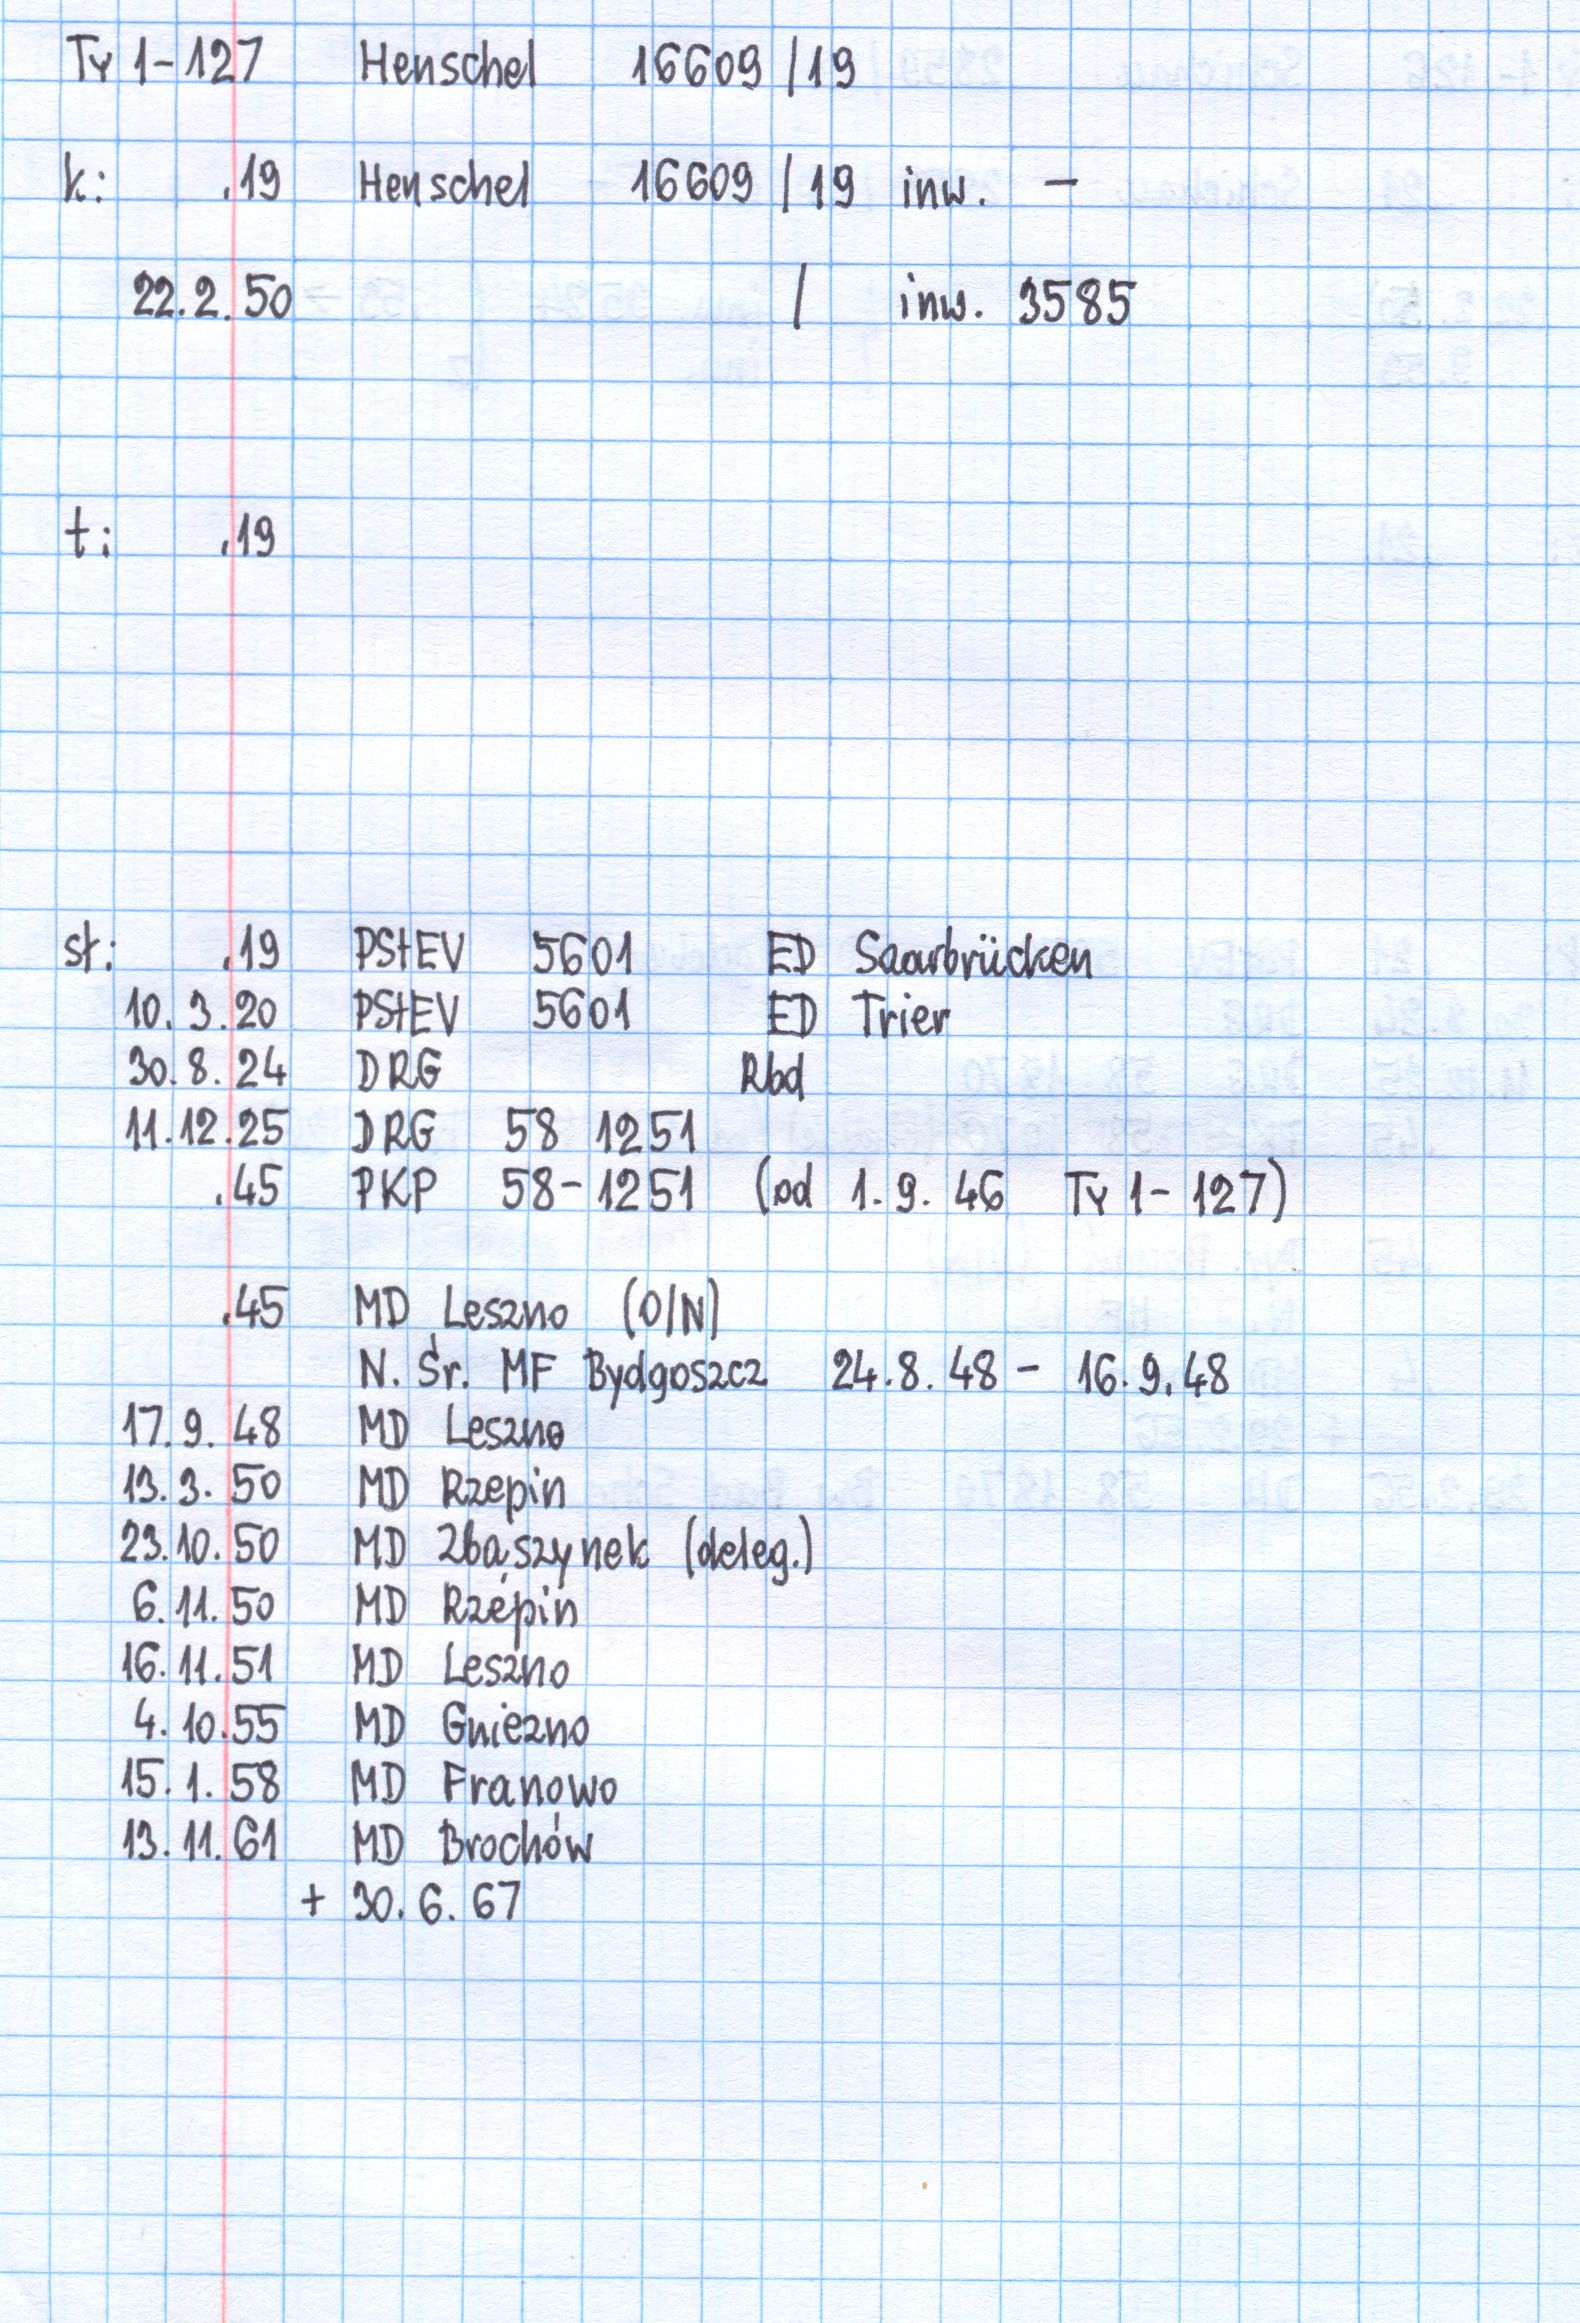 Ty 1-127 Henschel 16609 /19
k: .19 Henschel 16609 /19 inw. -
22.2.50 / inw. 3585
t: .19
st: .19 PStEV 5601 ED Saarbrücken
10.3.20 PStEV 5601 ED Trier
30.8.24 DRG Rbd
11.12.25 DRG 58 1251
.45 PKP 58-1251 (od 1.9.46 Ty 1-127)
.45 MD Leszno (O/N)
N. Śr. MF Bydgoszcz 24.8.48 - 16.9.48
17.9.48 MD Leszno
13.3.50 MD Rzepin
23.10.50 MD Zbąszynek (deleg.)
6.11.50 MD Rzepin
16.11.51 MD Leszno
4.10.55 MD Gniezno
15.1.58 MD Franowo
13.11.61 MD Brochów
+ 30.6.67